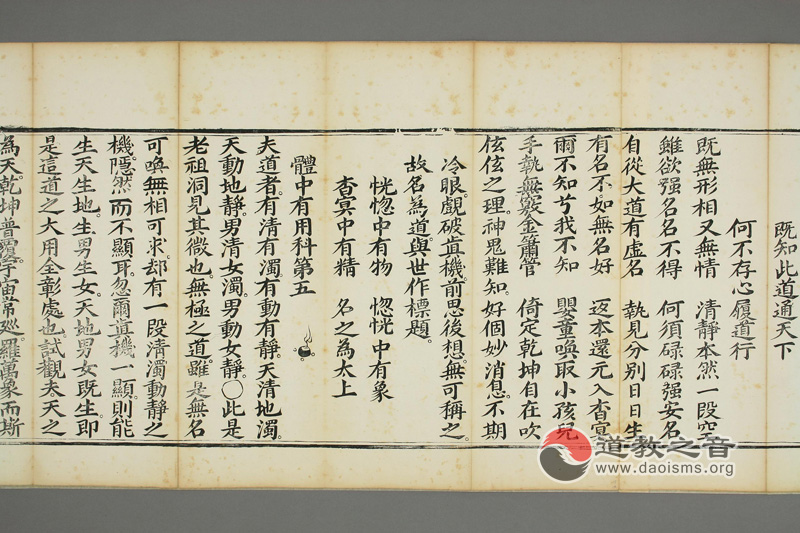 既知此道通天下
何不存心履道行
既無形相又無情 清靜本然一段空
雖欲强名名不得 何須碌碌强安名
自從大道有虛名 執見分別日日生
有名不如無名好 返本還元入杳冥
爾不知兮我不知 嬰童喚取小孩兒
手執無竅金簫管 倚定乾坤自在吹
伭伭之理。神鬼難知。好個妙消息。不期
冷眼。覷破眞機。前思後想。無可稱之。
故名為道。與世作標題。
恍惚中有物 惚恍中有象
杳冥中有精 名之為太上
體中有用科第五
夫道者。有清有濁。有動有靜。天清地濁。
天動地靜。男清女濁。男動女靜。〇此是
老祖洞見其微也。無極之道。雖是無名
可喚。無相可求。却有一段清濁動靜之
機。隱然而不顯耳。忽爾眞機一顯。則能
生天生地。生男生女。天地男女既生。即
是這道之大用全彰處也。試觀夫天之
為天。乾坤普覆。宇宙常廵。羅萬象而斯
道教之音
www.daoisms.org